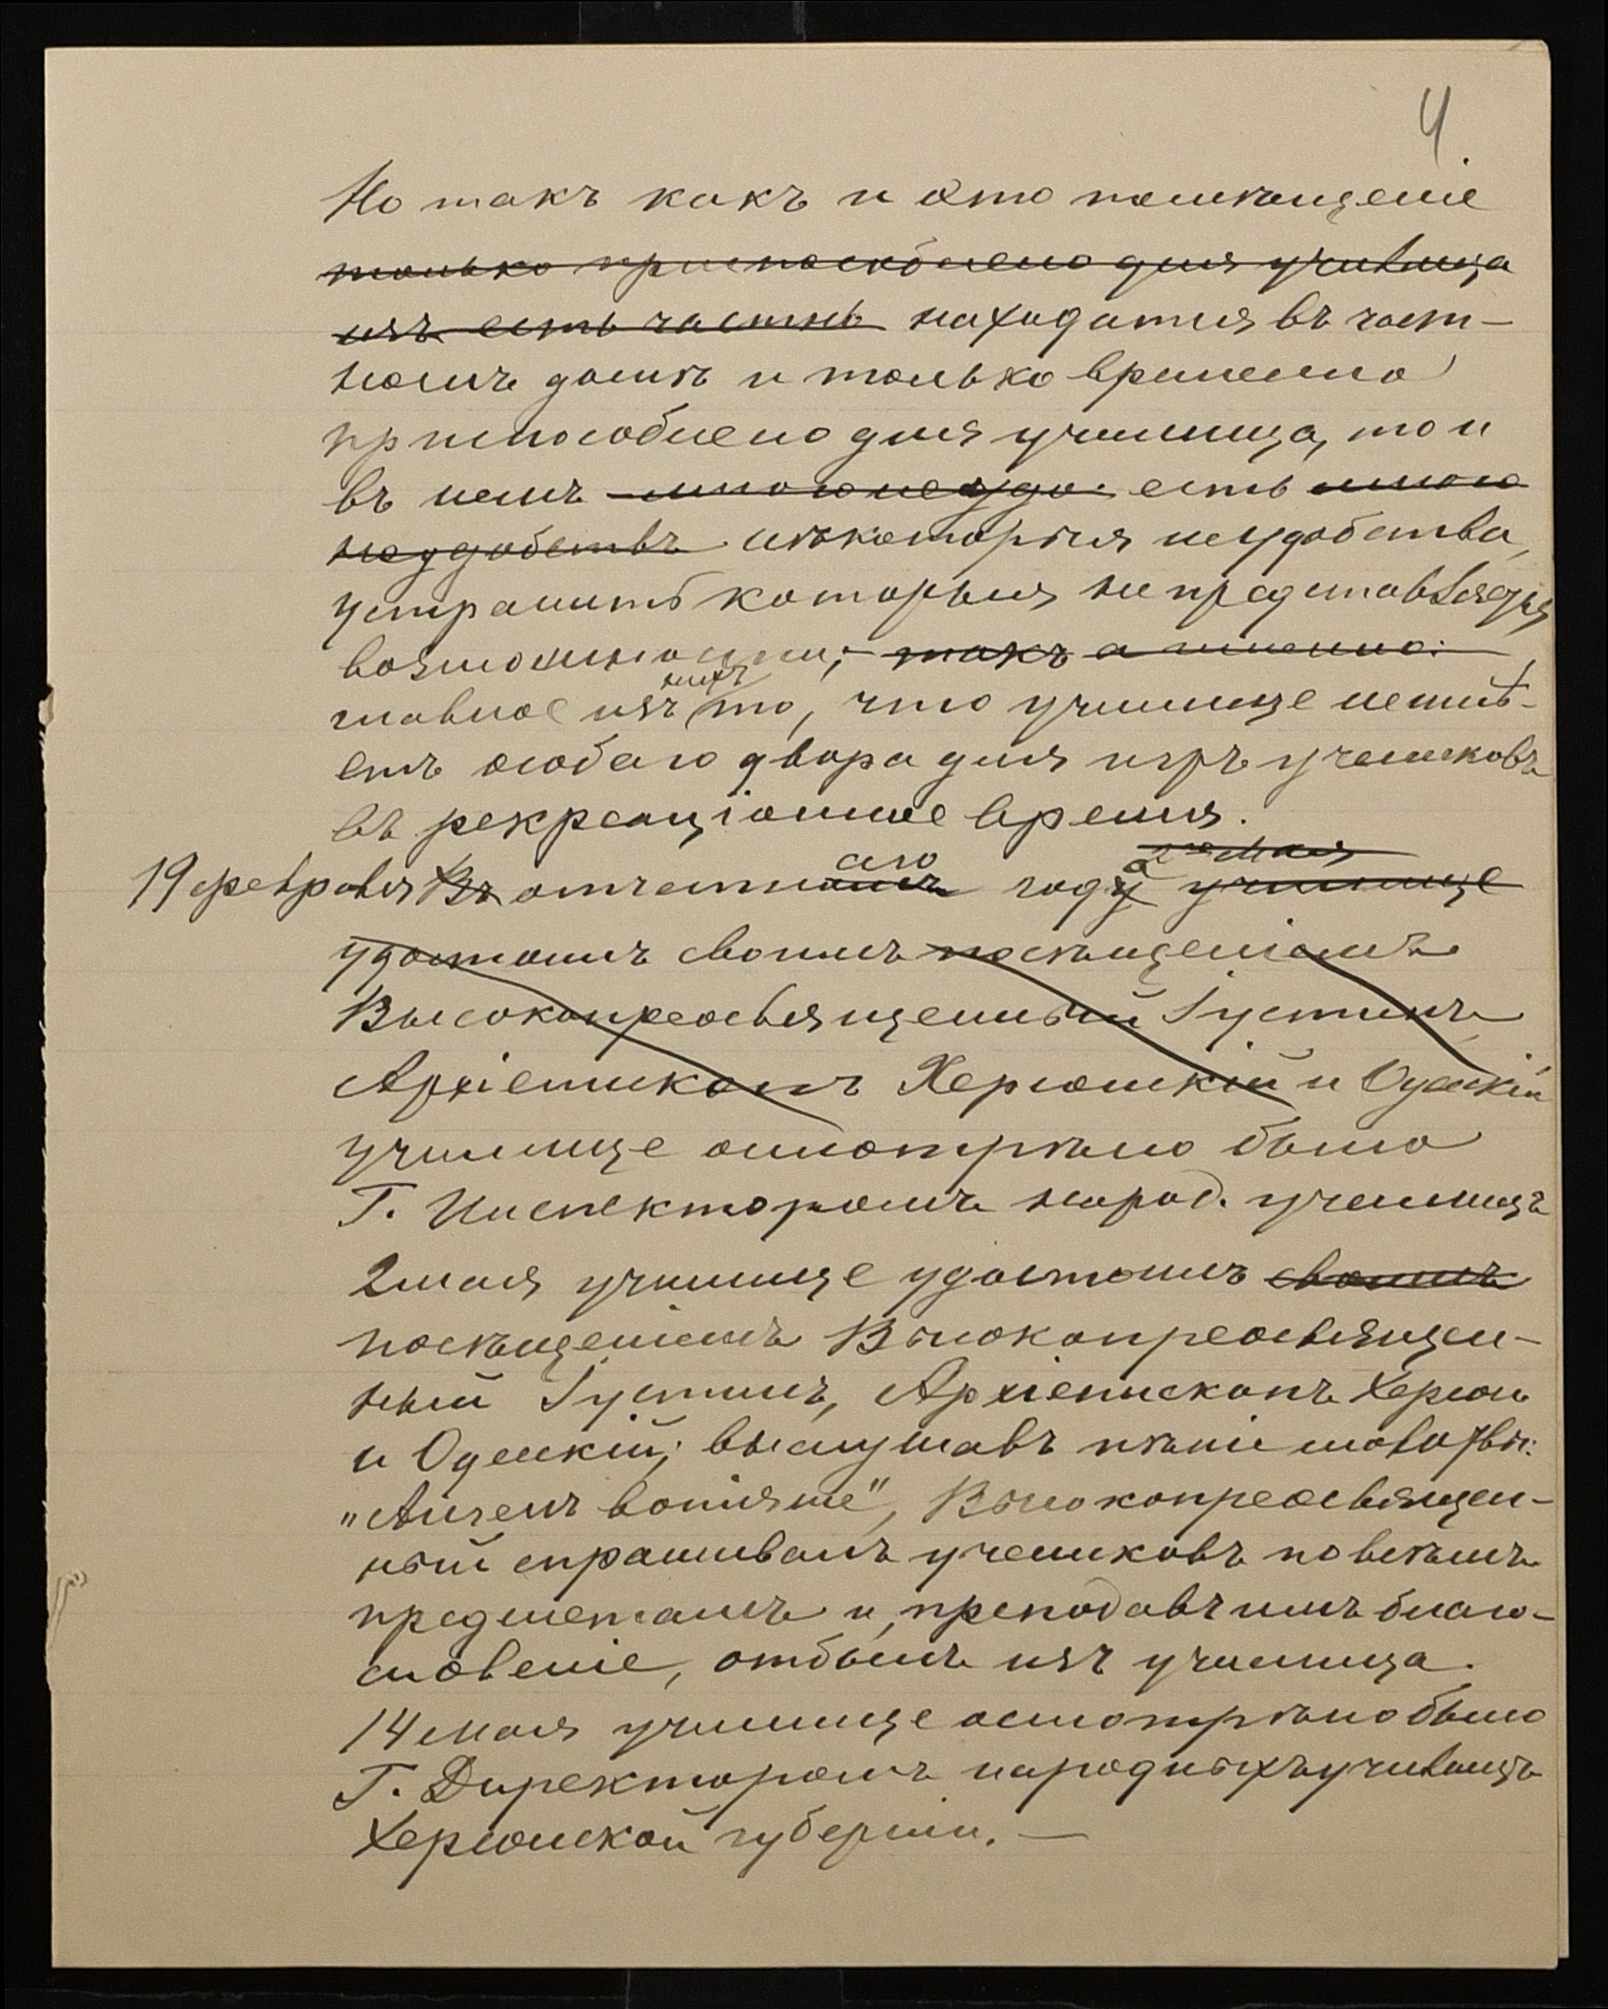 4.
Но такъ какъ и это помѣщеніе
только приспособлено для училища
изъ есть частнь находится въ част-
номъ домѣ и только временно
приспособлено для училища, то и
въ немъ много неудо. есть много
неудобствъ нѣкоторыя неудобства,
устранить которыя не представляется
возможности; такъ а именно:
нихъ
главное изъ то, что училище не имѣ-
етъ особаго двора для игръ учениковъ
въ рекреаціонное время.
аго 2го Мая
19 февраля Въ отчетномъ году училище
удостоилъ своимъ посѣщеніемъ
Высокопреосвященный Іустинъ
Архіепископъ Херсонскій и Одесскій
училище осмотрѣно было
Г. Инспекторомъ народ. училищъ
2 мая училище удостоилъ своимъ
посѣщеніемъ Высокопреосвящен-
ный Іустинъ, Архіепископъ Херсон
и Одесскій; выслушавъ пѣніе
„Ангелъ вопіяше", Высокопреосвящен-
ный спрашивалъ учениковъ по всѣмъ
предметамъ и, преподавъ имъ благо-
словеніе, отбылъ изъ училища.
14 мая училище осмотрѣно было
Г. Директоромъ народныхъ училищъ
Херсонской губерніи. —